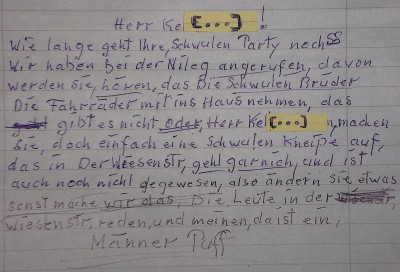 Herr Ke[...]!
Wie lange geht Ihre, Schwulen Party noch
Wir haben bei der Nileg angerufen, davon
werden Sie, hören, das Die Schwulen Brüder
Die Fahrräder mit ins Haus nehmen, das
gibt es nicht Oder, Herr Kel[...]n, machen
Sie, doch einfach eine Schwulen Kneipe auf,
das in Der Weesenstr, gehl garnich, und ist
auch noch nicht degewesen, also ändern sie etwas
sonst mache wir das, Die Leute in der
wiesenstr, reden, und meinen, da ist ein,
Männer Puff